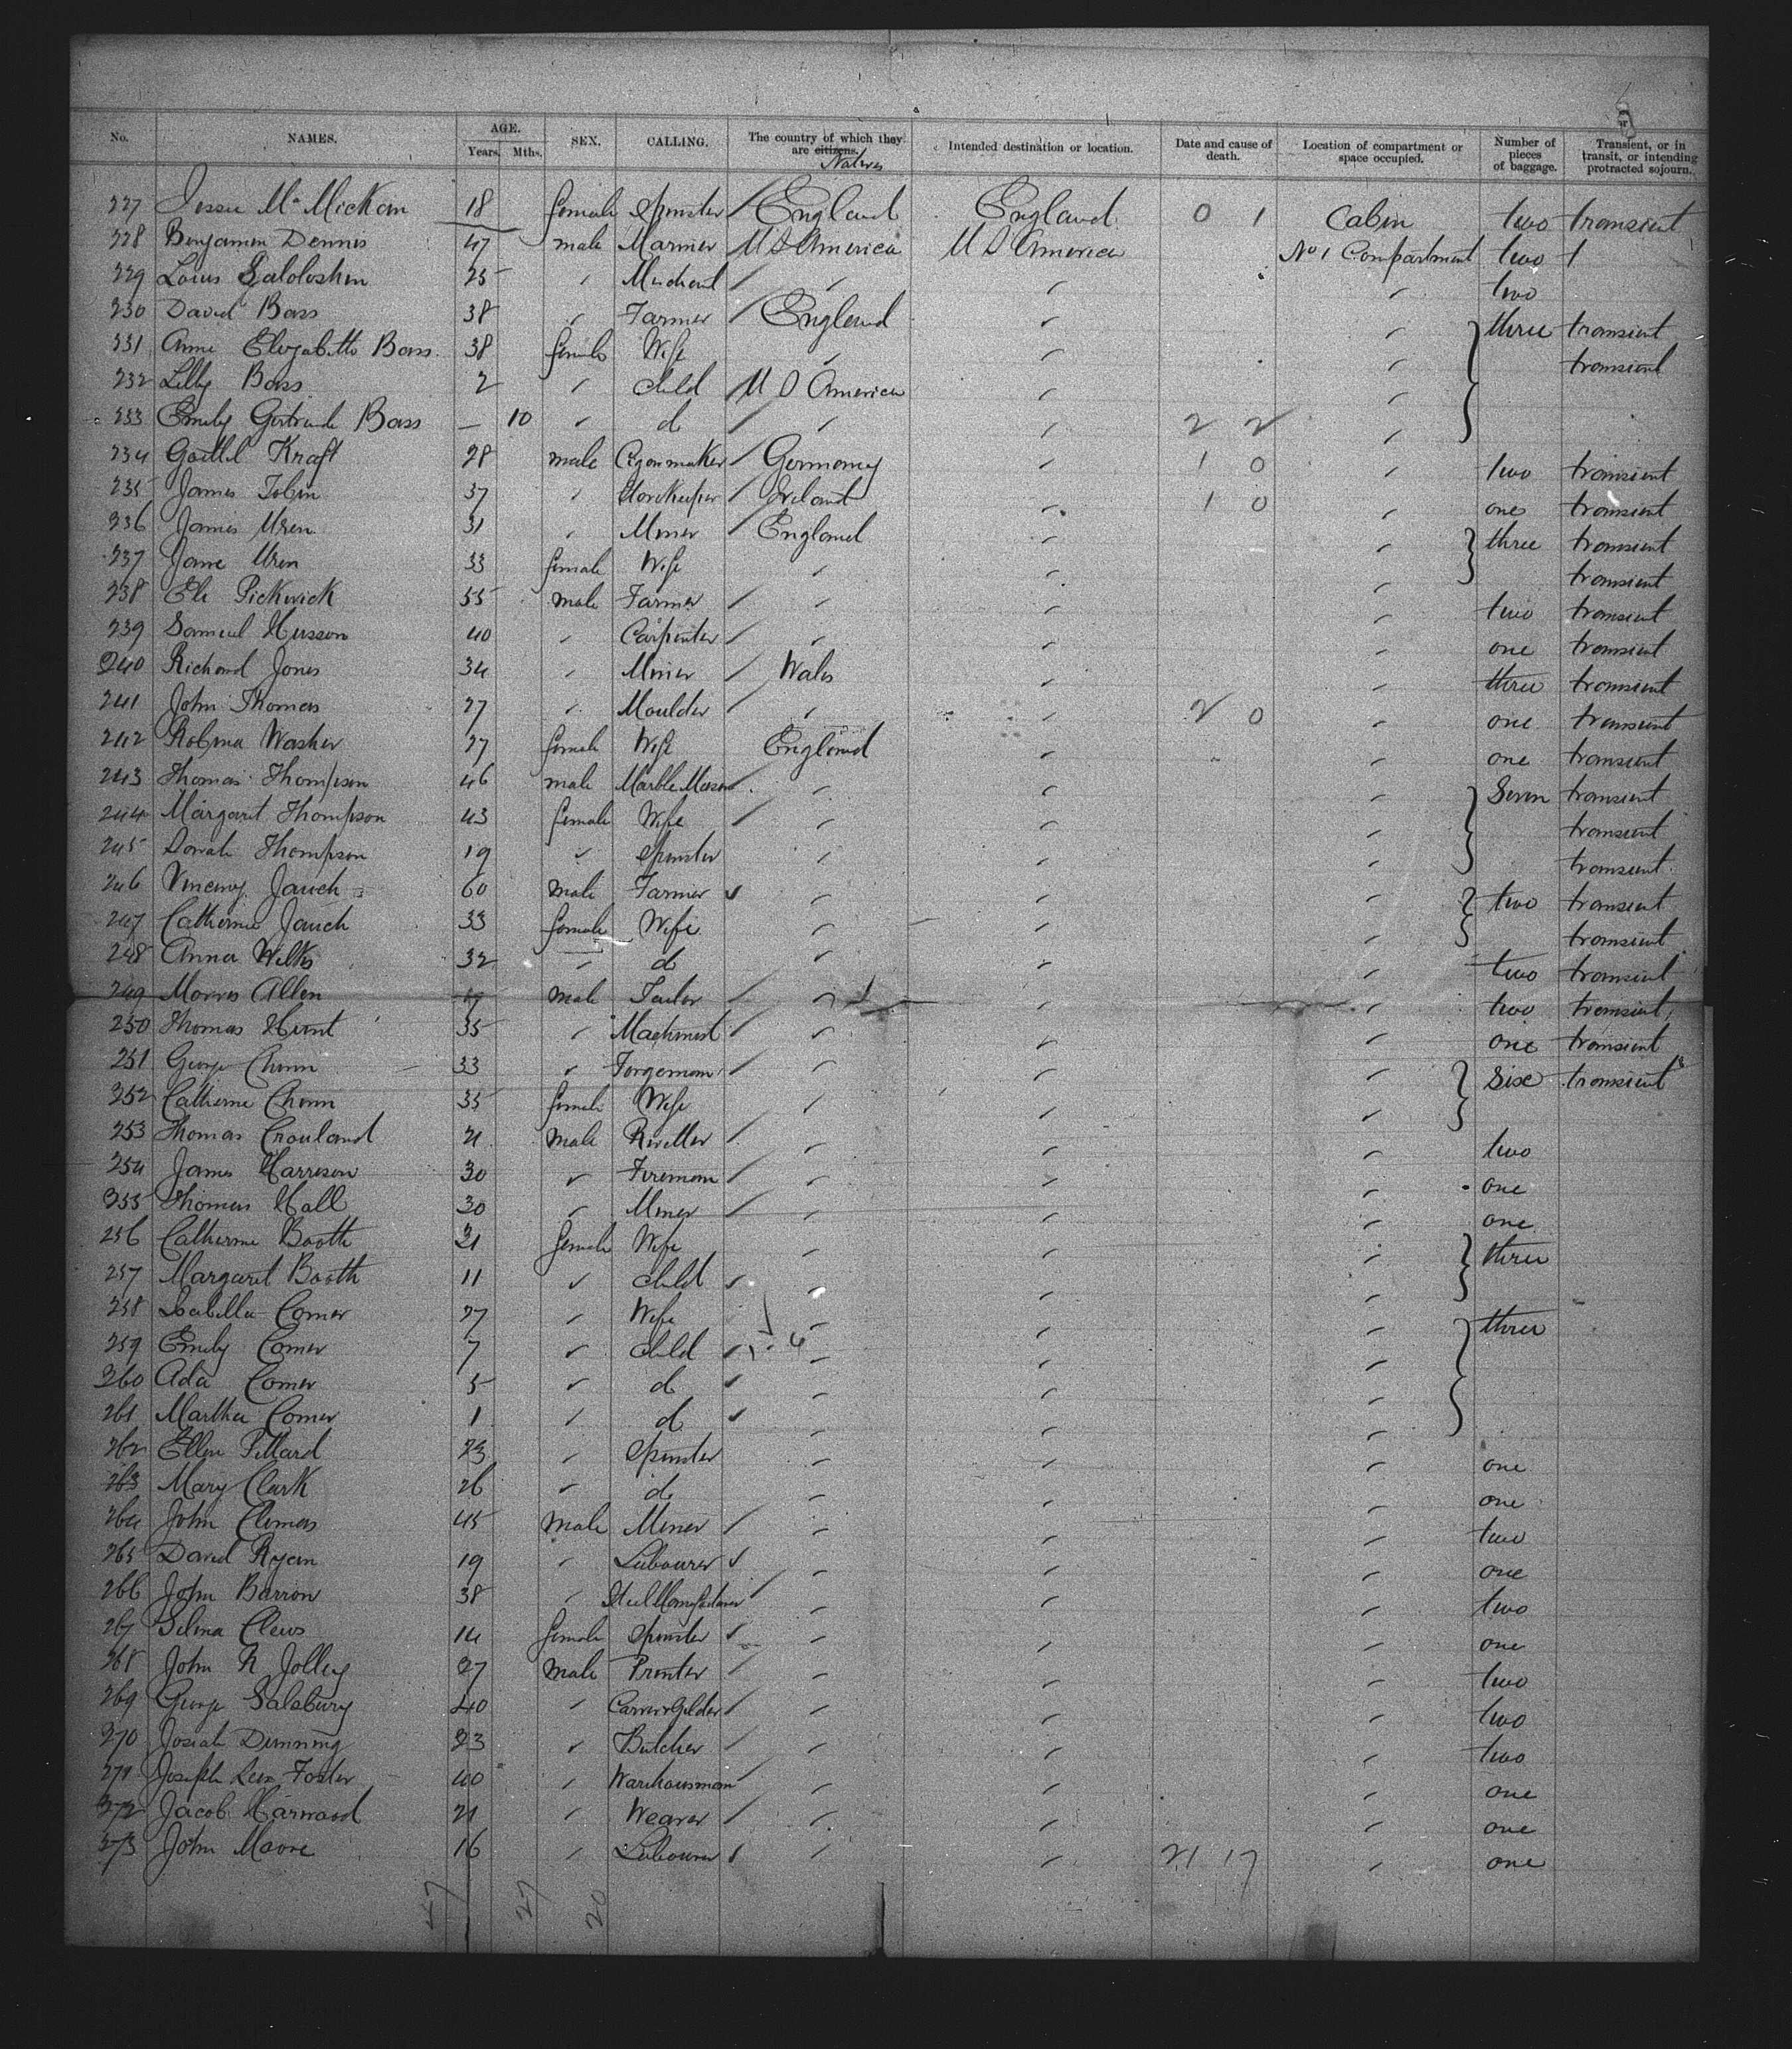 No. NAMES. AGE. Years. Mths. SEX. CALLING. The country of which they are citizens. Natives Intended destination or location. Date and cause of death. Location of compartment or space occupied. Number of pieces of baggage. Transient, or in transit, or intending protracted sojourn.
227 Jessie McMickan 18 female Spinster England England 0 1 Cabin two transient
228 Benjamin Dennis 47 male Mariner U S America U S America No 1 Compartment two 1
229 Louis 25 " Merchant " " " two
230 David Bass 38 " Farmer England " " three transient
231 Anne Elizabeth Bass 38 female Wife " " " transient
232 Lilly Bass 2 " child U S America " "
233 Emily Gertrude Bass — 10 " do " " 2 2 "
234 Kraft 28 male Germany " 1 0 " two transient
235 James Tobin 37 " Storekeeper Ireland " 1 0 " one transient
236 James Uren 31 " Miner England " " three transient
237 Jane Uren 33 female Wife " " " transient
238 Eli Pickwick 55 male Farmer " " " two transient
239 Samuel Husson 40 " Carpenter " " " one transient
240 Richard Jones 34 " Miner Wales " " three transient
241 John Thomas 27 " Moulder " " 2 0 " one transient
242 Robina Washer 27 female Wife England " " one transient
243 Thomas Thompson 46 male Marble Mason " " " Seven transient
244 Margaret Thompson 43 female Wife " " " transient
245 Thompson 19 " Spinster " " " transient
246 Jauch 60 male Farmer " " " two transient
247 Catherine Jauch 33 female Wife " " " transient
248 Anna Wilks 32 " do " " " two transient
249 Morris Allen male Tailor " " " two transient
250 Thomas Hunt 35 " Machinist " " " one transient
251 George Chunn 33 " Forgeman " " " Six transient
252 Catherine Chunn 35 female Wife " " "
253 Thomas Crouland 21 male Rivetter " " " two
254 James Harrison 30 " Fireman " " " one
255 Thomas Hall 30 " Miner " " " one
256 Catherine Booth 31 female Wife " " " three
257 Margaret Booth 11 " child " " "
258 Isabella Comer 27 " Wife " " " three
259 Emily Comer 7 " child " " "
260 Ada Comer 5 " do " " "
261 Martha Comer 1 " do " " "
262 Ellen Pillard 23 " Spinster " " " one
263 Mary Clark 26 " do " " " one
264 John Climas 45 male Miner " " " two
265 David Ryan 19 " Labourer " " " one
266 John Barron 38 " Steel Manufacturer " " " two
267 Selina Clews 14 female Spinster " " " one
268 John R Jolley 27 male Printer " " " two
269 George Salsbury 40 " Carver & Gilder " " " two
270 Josiah Dimming 23 " Butcher " " " two
271 Joseph Lees Foster 40 " Warehouseman " " " one
272 Jacob Harwood 21 " Weaver " " " one
273 John Moore 16 " Labourer " " 21 17 " one
47 27 20